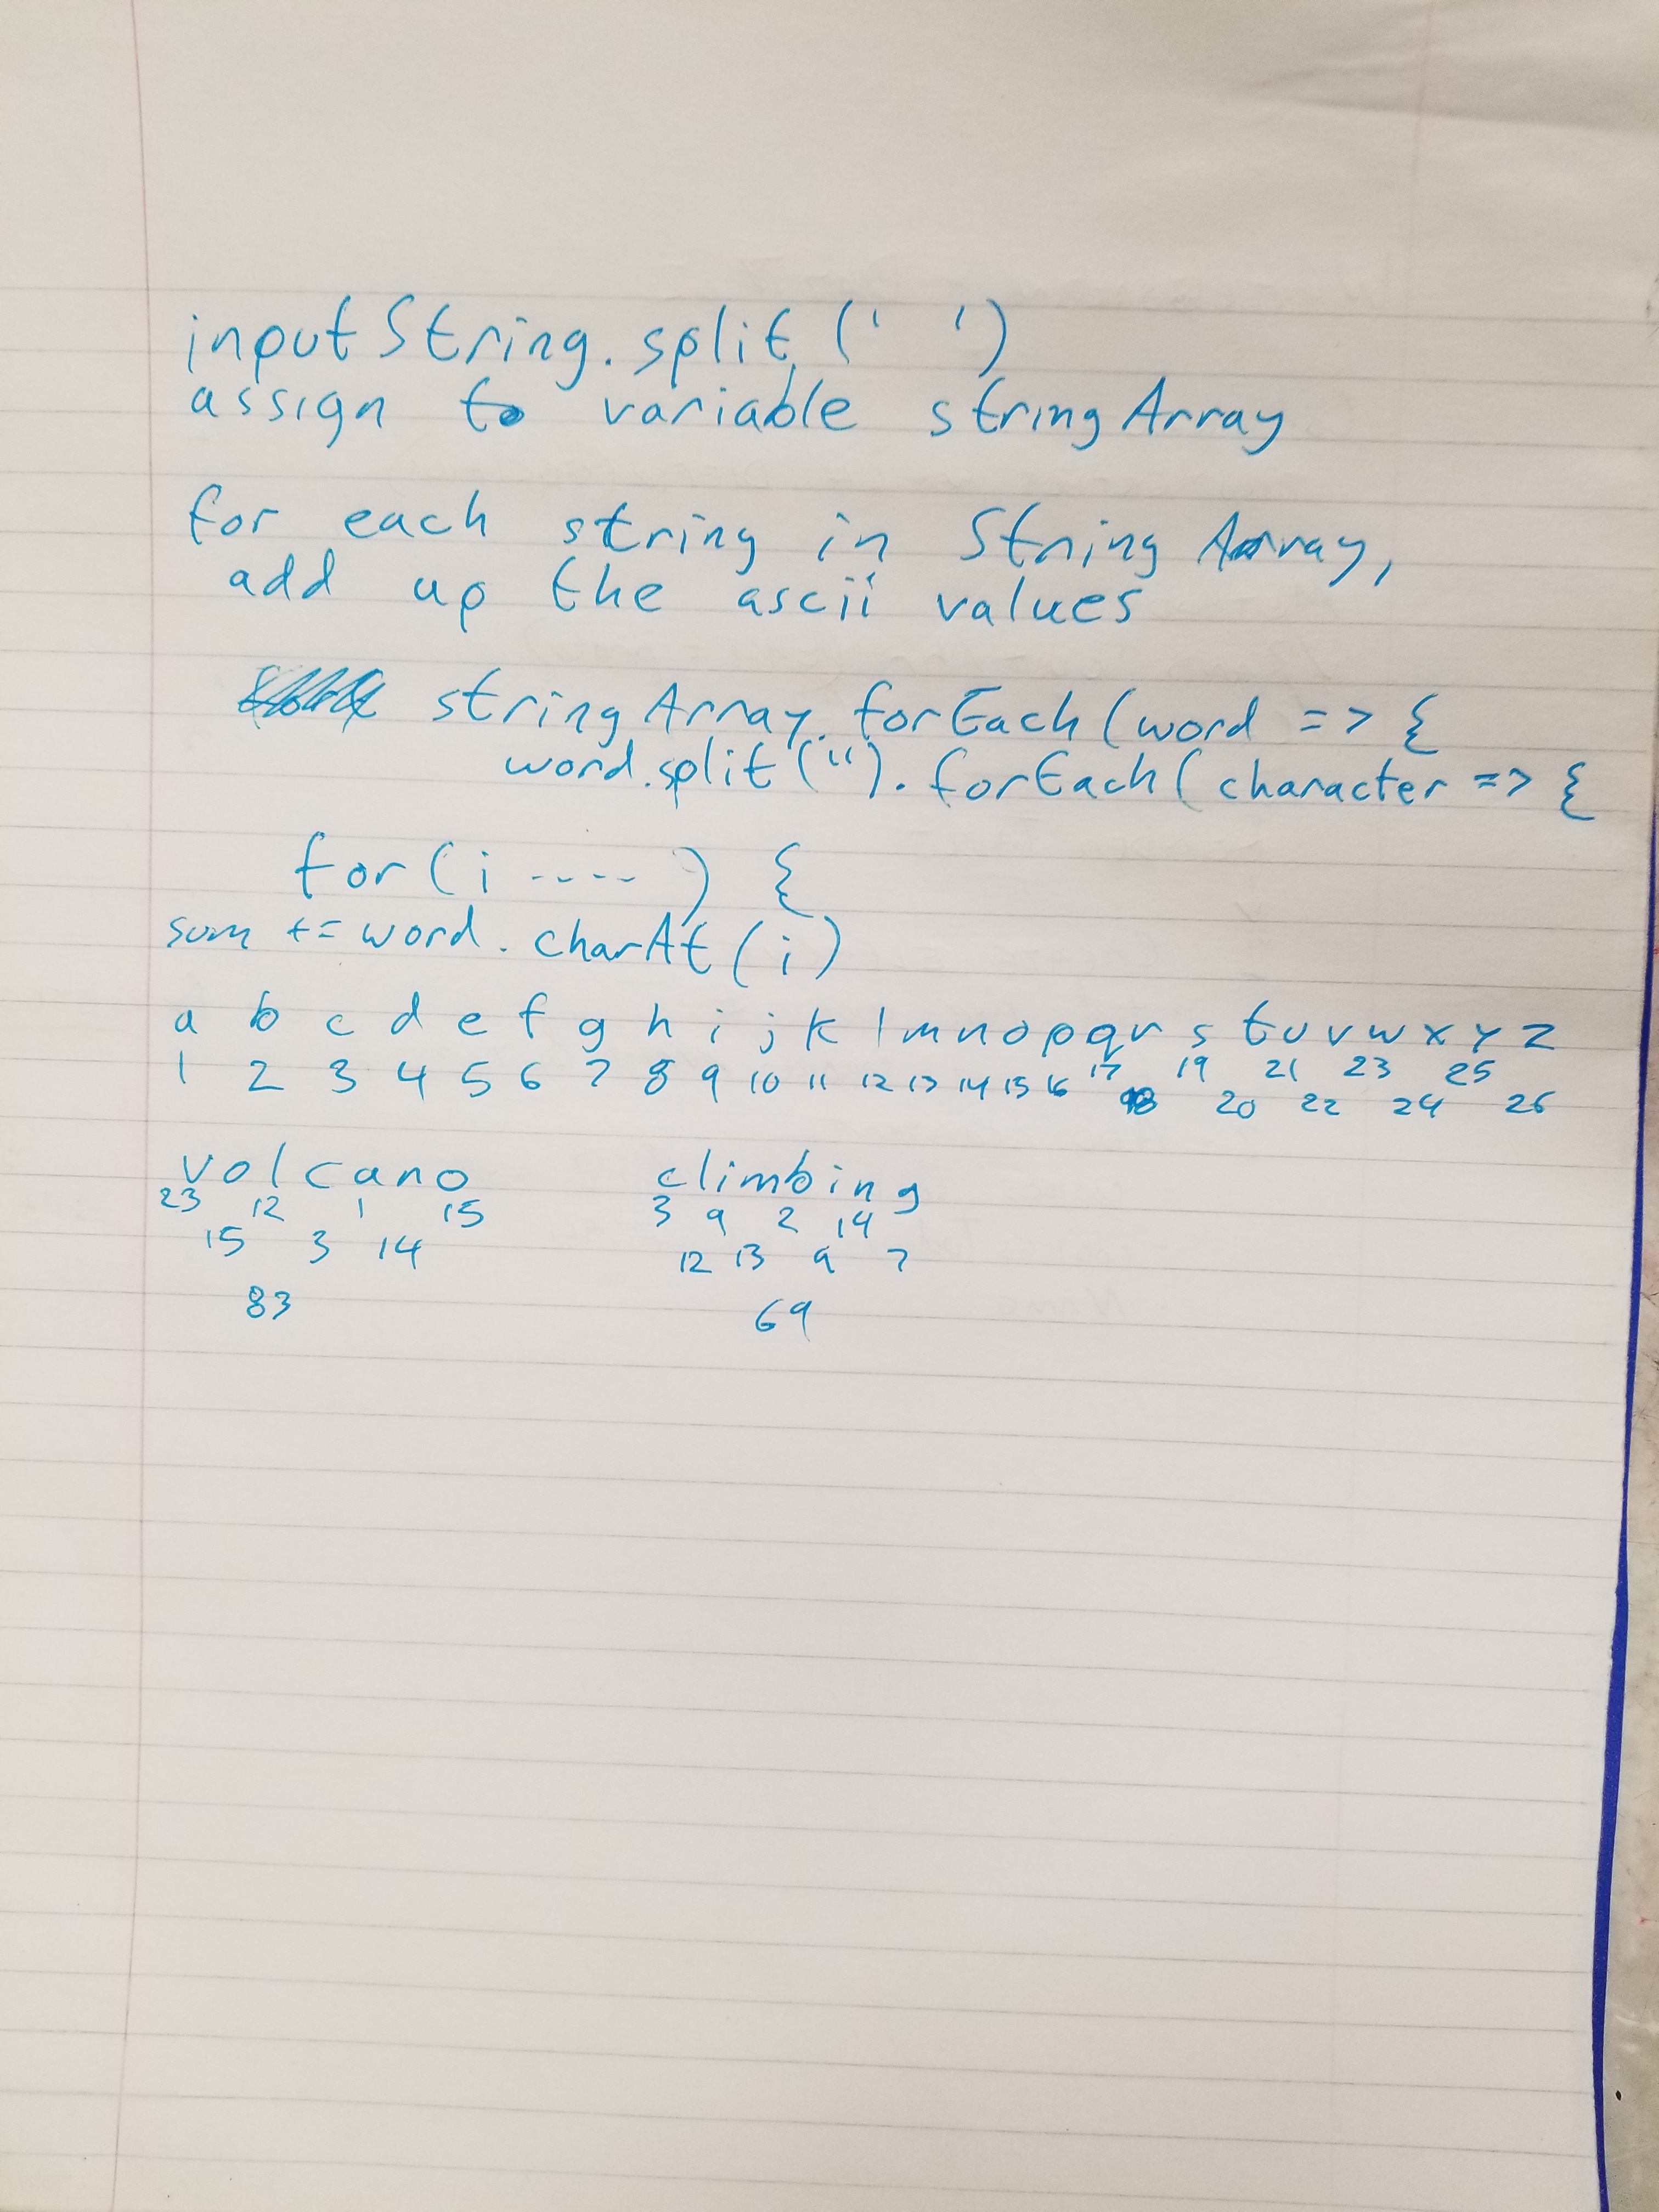 inputString.split(' ')
assign to variable stringArray
for each string in StringArray,
add up the ascii values
stringArray.forEach(word => {
word.split('').forEach(character => {
for(i ----) {
sum += word.charAt(i)
a b c d e f g h i j k l m n o p q r s t u v w x y z
1 2 3 4 5 6 7 8 9 10 11 12 13 14 15 16 17 18 19 20 21 22 23 24 25 26
volcano climbing
23 12 1 15 3 9 2 14
15 3 14 12 13 9 7
83 69